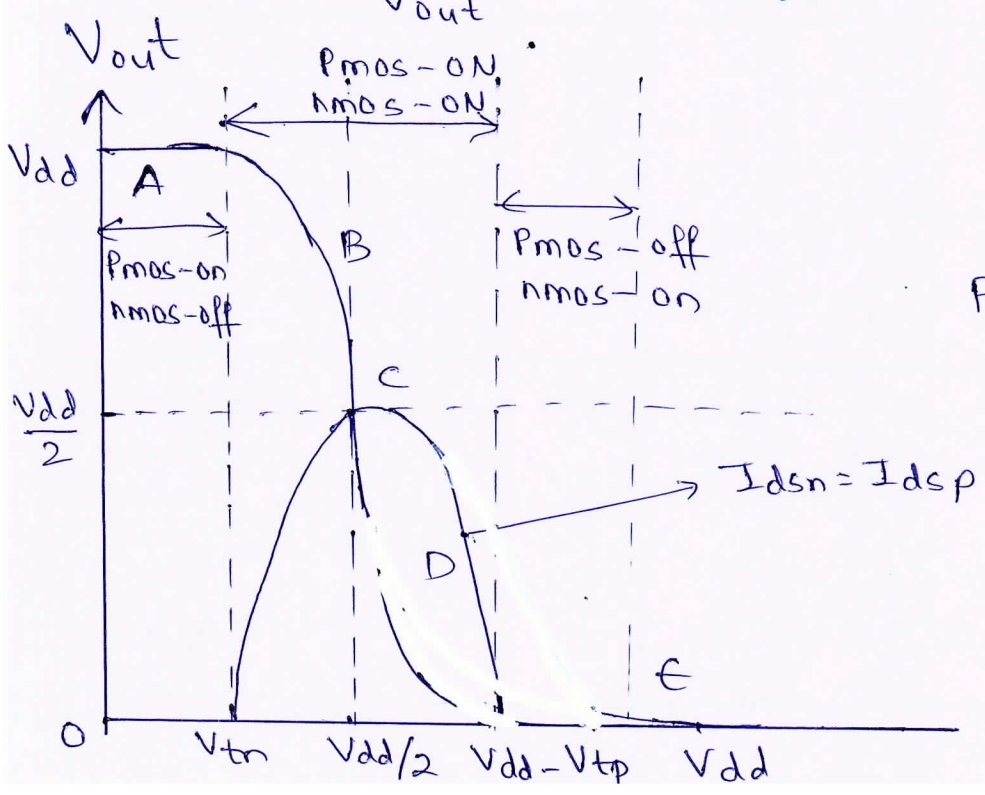 Vout
Vout
Pmos-ON
nmos-ON
Vdd
A
Pmos-on
nmos-off
B
Pmos-off
nmos-on
C
Vdd/2
Idsn = Idsp
D
E
0
Vtn
Vdd/2
Vdd-Vtp
Vdd